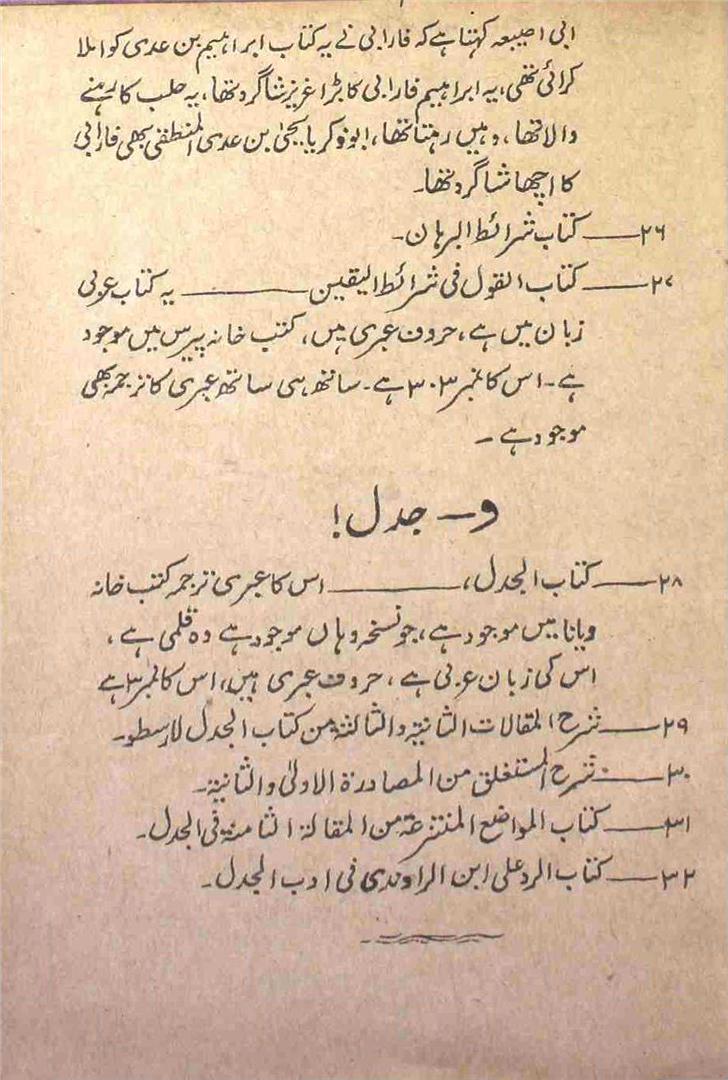 ابی اصیبعہ کہتا ہے کہ فارابی نے یہ کتاب ابراہیم بن عدی کو املا
کرائی تھی، یہ ابراہیم فارابی کا بڑا عزیز شاگرد تھا، یہ حلب کا رہنے
والا تھا، وہیں رہتا تھا، ابوزکریا یحییٰ بن عدی المنطقی بھی فارابی
کا اچھا شاگرد تھا۔
۲۶—— کتاب شرائط البرہان۔
۲۷—— کتاب القول فی شرائط الیقین ——— یہ کتاب عربی
زبان میں ہے، حروف عبری ہیں، کتب خانہ پیرس میں موجود
ہے۔ اس کا نمبر ۳۰۳ ہے۔ ساتھ ہی ساتھ عبری کا ترجمہ بھی
موجود ہے۔
و — جدل!
۲۸—— کتاب الجدل، ——— اس کا عبری ترجمہ کتب خانہ
ویانا میں موجود ہے، جو نسخہ وہاں موجود ہے وہ قلمی ہے،
اس کی زبان عربی ہے، حروف عبری ہیں، اس کا نمبر ۳ ہے
۲۹—— شرح المقالات الثانیۃ والثالثۃ من کتاب الجدل لارسطو۔
۳۰—— شرح المستغلق من المصادرۃ الاولیٰ والثانیۃ۔
۳۱—— کتاب المواضع المنتزعۃ من المقالۃ الثامنۃ فی الجدل۔
۳۲—— کتاب الرد علی ابن الراوندی فی ادب الجدل۔